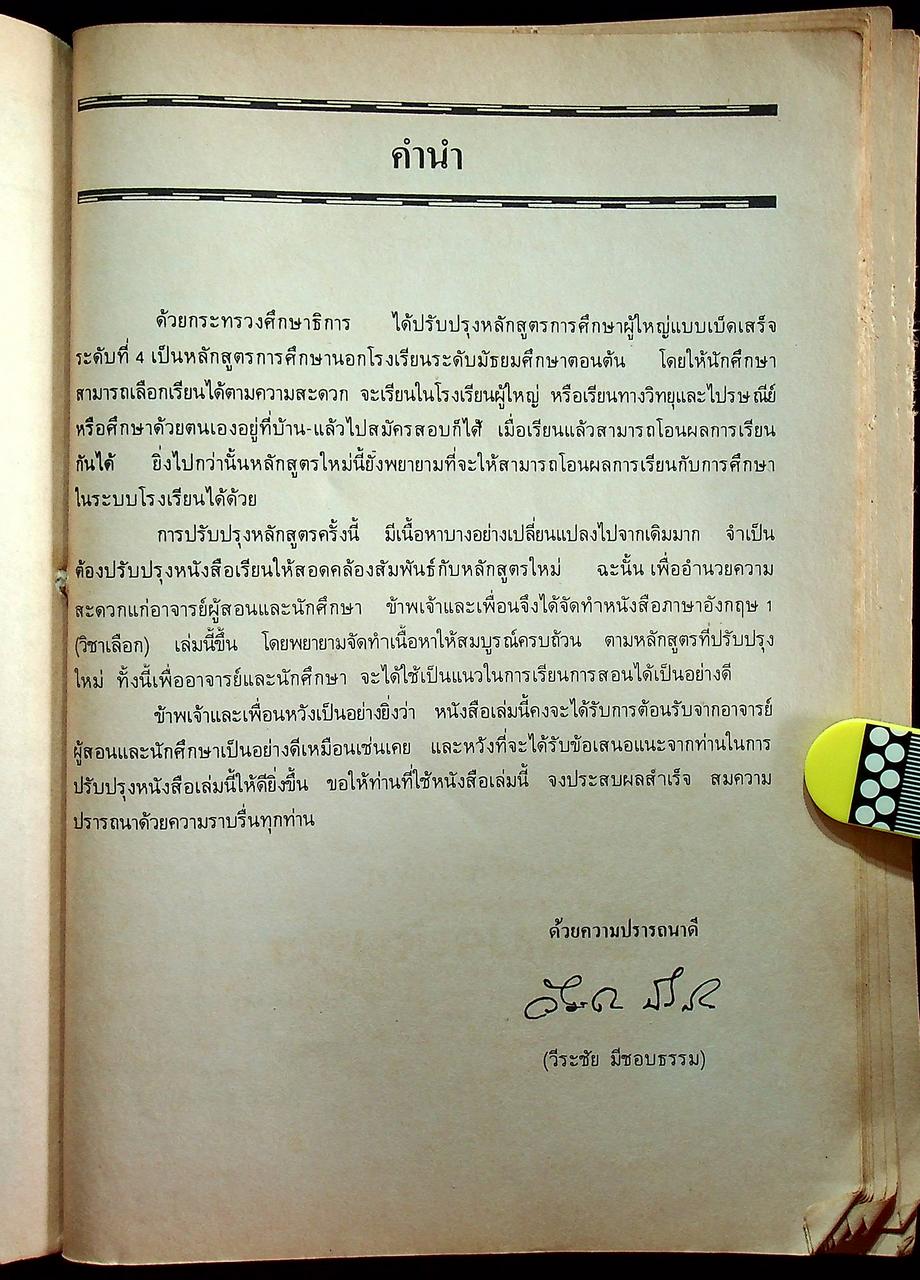 คำนำ
ด้วยกระทรวงศึกษาธิการ ได้ปรับปรุงหลักสูตรการศึกษาผู้ใหญ่แบบเบ็ดเสร็จ
ระดับที่ 4 เป็นหลักสูตรการศึกษานอกโรงเรียนระดับมัธยมศึกษาตอนต้น โดยให้นักศึกษา
สามารถเลือกเรียนได้ตามความสะดวก จะเรียนในโรงเรียนผู้ใหญ่ หรือเรียนทางวิทยุและไปรษณีย์
หรือศึกษาด้วยตนเองอยู่ที่บ้าน-แล้วไปสมัครสอบก็ได้ เมื่อเรียนแล้วสามารถโอนผลการเรียน
กันได้ ยิ่งไปกว่านั้นหลักสูตรใหม่นี้ยังพยายามที่จะให้สามารถโอนผลการเรียนกับการศึกษา
ในระบบโรงเรียนได้ด้วย
การปรับปรุงหลักสูตรครั้งนี้ มีเนื้อหาบางอย่างเปลี่ยนแปลงไปจากเดิมมาก จำเป็น
ต้องปรับปรุงหนังสือเรียนให้สอดคล้องสัมพันธ์กับหลักสูตรใหม่ ฉะนั้น เพื่ออำนวยความ
สะดวกแก่อาจารย์ผู้สอนและนักศึกษา ข้าพเจ้าและเพื่อนจึงได้จัดทำหนังสือภาษาอังกฤษ 1
(วิชาเลือก) เล่มนี้ขึ้น โดยพยายามจัดทำเนื้อหาให้สมบูรณ์ครบถ้วน ตามหลักสูตรที่ปรับปรุง
ใหม่ ทั้งนี้เพื่ออาจารย์และนักศึกษา จะได้ใช้เป็นแนวในการเรียนการสอนได้เป็นอย่างดี
ข้าพเจ้าและเพื่อนหวังเป็นอย่างยิ่งว่า หนังสือเล่มนี้คงจะได้รับการต้อนรับจากอาจารย์
ผู้สอนและนักศึกษาเป็นอย่างดีเหมือนเช่นเคย และหวังที่จะได้รับข้อเสนอแนะจากท่านในการ
ปรับปรุงหนังสือเล่มนี้ให้ดียิ่งขึ้น ขอให้ท่านที่ใช้หนังสือเล่มนี้ จงประสบผลสำเร็จ สมความ
ปรารถนาด้วยความราบรื่นทุกท่าน
ด้วยความปรารถนาดี
(วีระชัย มีชอบธรรม)